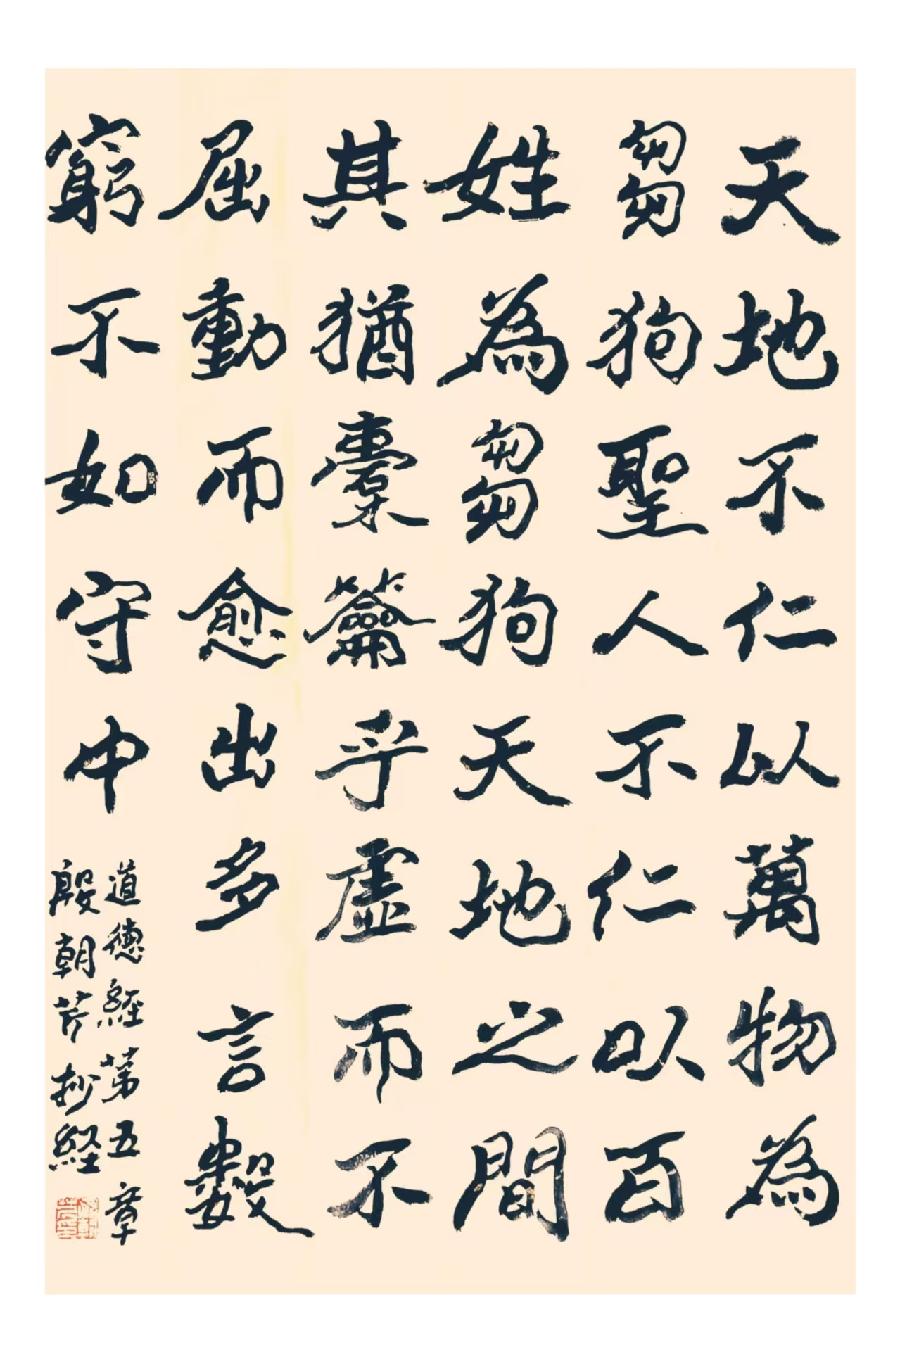 天地不仁以萬物為
芻狗聖人不仁以百
姓為芻狗天地之間
其猶橐籥乎虛而不
屈動而愈出多言數
窮不如守中
道德經第五章
殷朝芳抄経